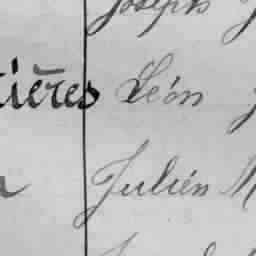 Joseph
ières Léon
Julien M